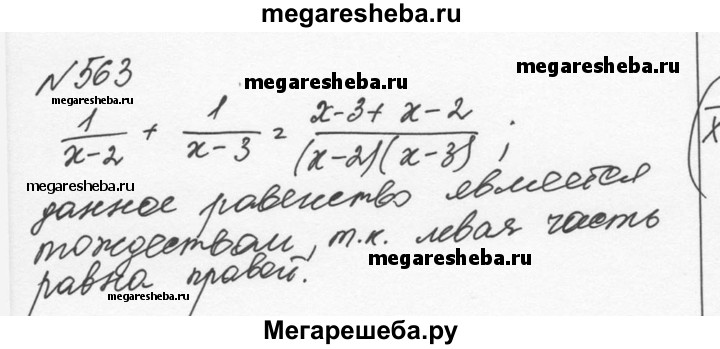 megaresheba.ru
N563
megaresheba.ru
megaresheba.ru
1/(x-2) + 1/(x-3) = (x-3+x-2)/((x-2)(x-3)) ;
megaresheba.ru
данное равенство является
тождеством, т.к. левая часть
megaresheba.ru
равна правой.
megaresheba.ru
Мегарешеба.ру